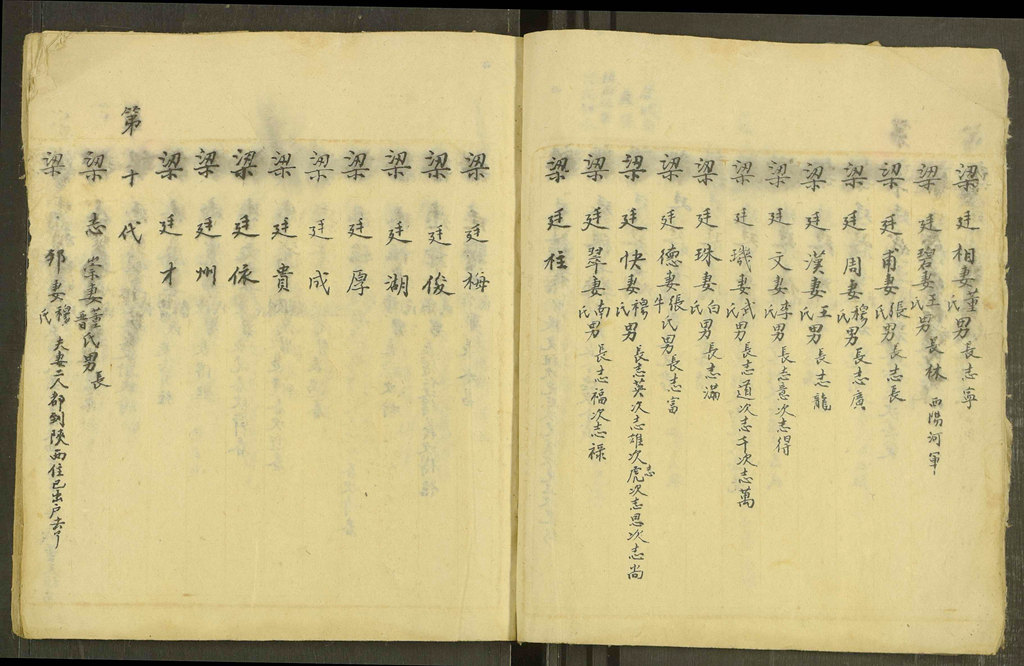 梁廷相妻董氏男長志寧
梁廷碧妻王氏男長林西陽河軍
梁廷甫妻張氏男長志長
梁廷周妻穆氏男長志廣
梁廷漢妻王氏男長志龍
梁廷文妻李氏男長志意次志得
梁廷璣妻武氏男長志道次志千次志萬
梁廷珠妻白氏男長志滿
梁廷德妻張牛氏男長志富
梁廷快妻穆氏男長志英次志雄次志虎次志思次志尚
梁廷翠妻南氏男長志福次志禄
梁廷柱
梁廷梅
梁廷俊
梁廷湖
梁廷厚
梁廷成
梁廷貴
梁廷依
梁廷州
梁廷才
第十代
梁志崇妻董晋氏男長
梁邦妻穆氏夫妻二人都到陝西住已出户去了